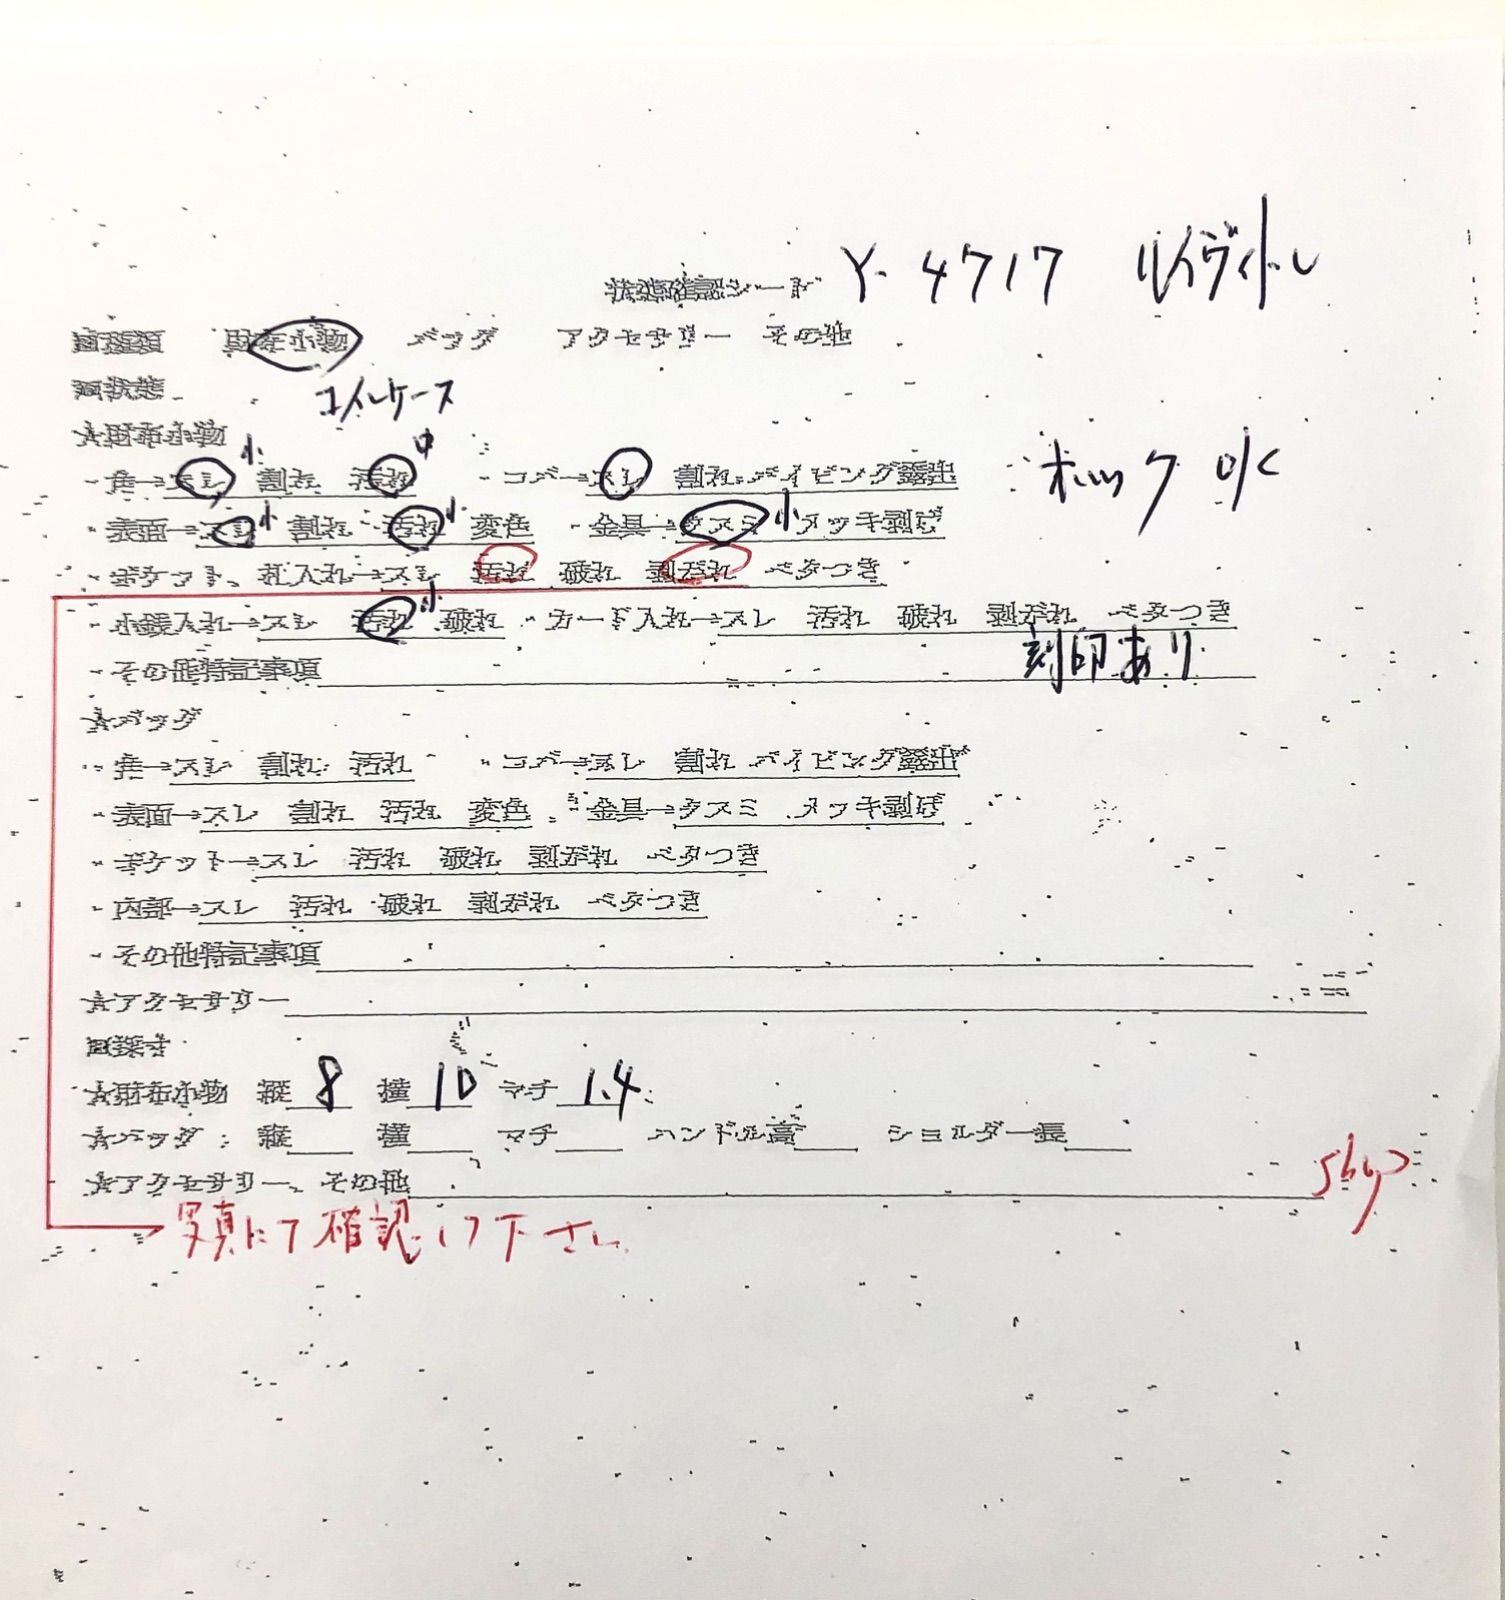 状態確認シード Y-4717 ルイヴィトン
財布小物 バッグ アクセサリー その他
コインケース
☆財布小物
・角→スレ小 割れ 汚れ中 ・コバ→スレ 割れ パイピング露出 ホック OK
・表面→スレ小 割れ 汚れ小 変色 ・金具→クスミ小 メッキ剥げ
・ポケット、札入れ→スレ 汚れ 破れ 剥がれ ベタつき
・小銭入れ→スレ 汚れ小 破れ ・カード入れ→スレ 汚れ 破れ 剥がれ ベタつき
・その他特記事項 刻印あり
☆バッグ
・角→スレ 割れ 汚れ ・コバ→スレ 割れ パイピング露出
・表面→スレ 割れ 汚れ 変色 ・金具→クスミ メッキ剥げ
・ポケット→スレ 汚れ 破れ 剥がれ ベタつき
・内部→スレ 汚れ 破れ 剥がれ ベタつき
・その他特記事項
☆アクセサリー
☆財布小物 縦 8 横 10 マチ 1.4
☆バッグ 縦 横 マチ ハンドル高 ショルダー長
☆アクセサリー、その他
写真にて確認して下さい